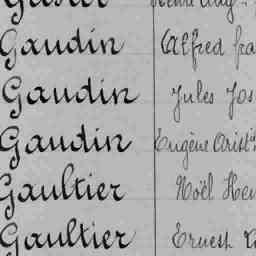 Gaudin Alfred
Gaudin Jules
Gaudin Eugène Arist
Gaultier Noël
Gaultier Ernest